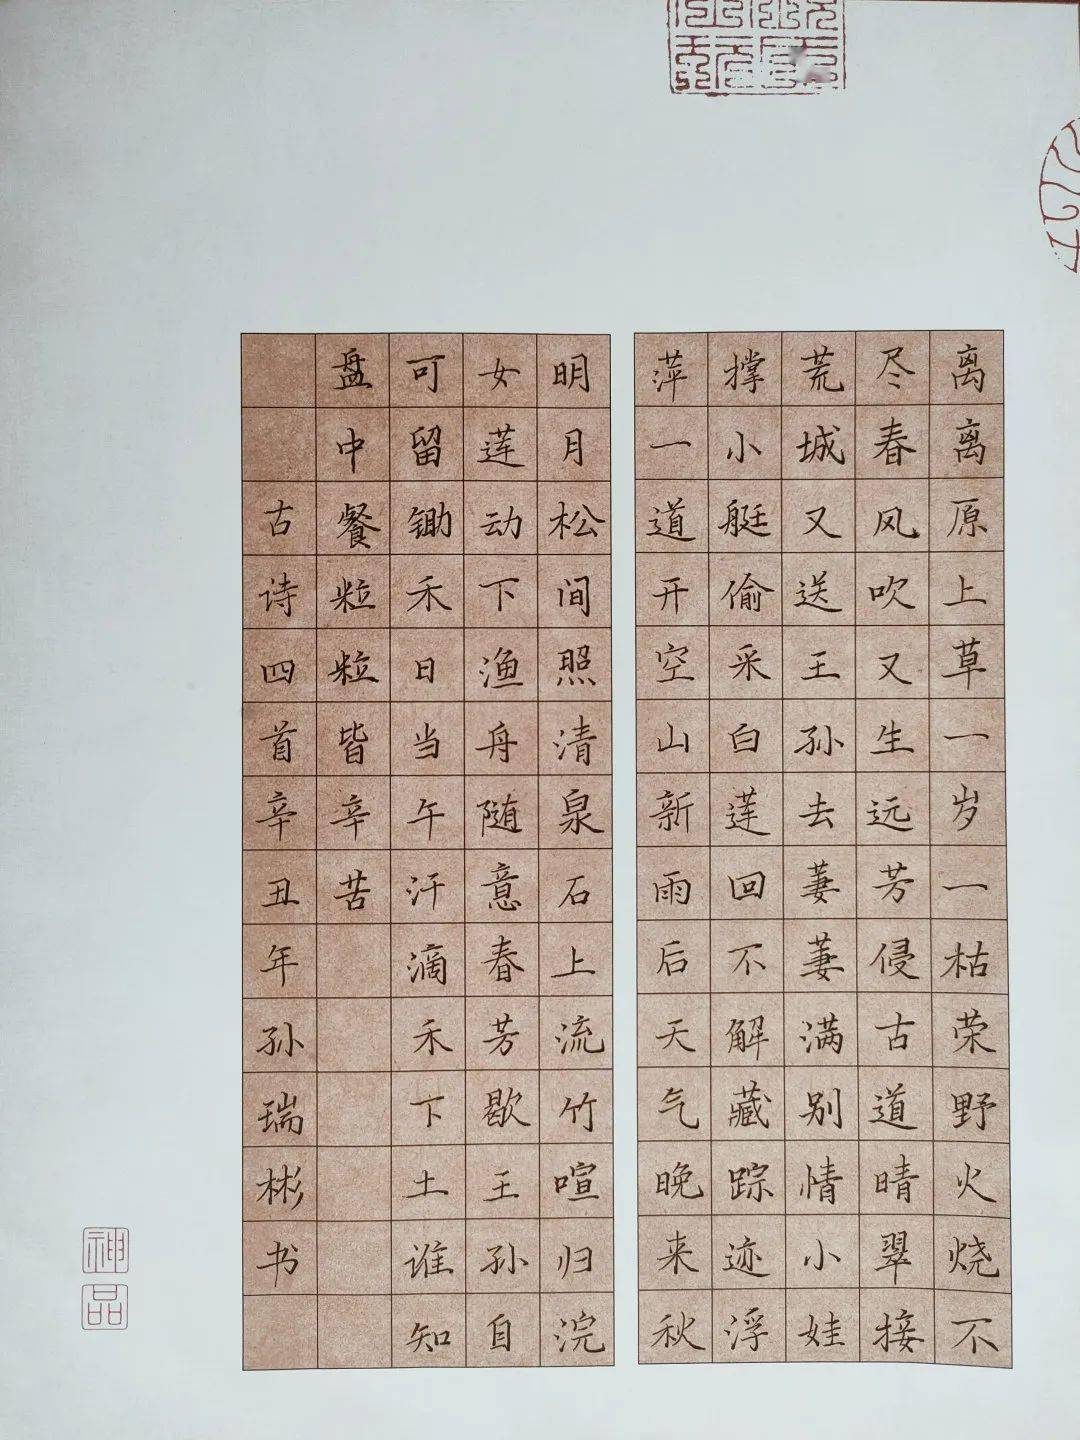 离离原上草一岁一枯荣野火烧不
尽春风吹又生远芳侵古道晴翠接
荒城又送王孙去萋萋满别情小娃
撑小艇偷采白莲回不解藏踪迹浮
萍一道开空山新雨后天气晚来秋
明月松间照清泉石上流竹喧归浣
女莲动下渔舟随意春芳歇王孙自
可留锄禾日当午汗滴禾下土谁知
盘中餐粒粒皆辛苦
古诗四首辛丑年孙瑞彬书
神品